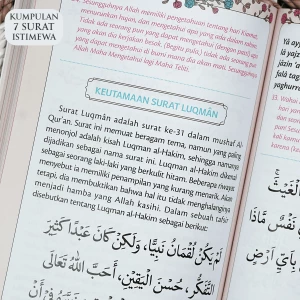 KUMPULAN
7 SURAT
ISTIMEWA
34. Sesungguhnya Allah memiliki pengetahuan tentang hari Kiamat,
menurunkan hujan, dan mengetahui apa yang ada dalam rahim.
Tidak ada seorang pun yang dapat mengetahui (dengan pasti) apa
yang akan dia kerjakan besok. (Begitu pula), tidak ada seorang pun
yang dapat mengetahui di bumi mana dia akan mati. Sesungguhnya
Allah Maha Mengetahui lagi Maha Teliti.
KEUTAMAAN SURAT LUQMÂN
Surat Luqmân adalah surat ke-31 dalam mushaf Al-
Qur'an. Surat ini memuat beragam tema, namun yang paling
menonjol adalah kisah Luqman al-Hakim, sehingga namanya
dijadikan sebagai nama surat ini. Luqman al-Hakim dikenal
sebagai seorang laki-laki yang berkulit hitam. Beberapa riwayat
menyebut ia memiliki penampilan yang kurang menarik. Akan
tetapi, dia membuktikan bahwa hal itu tidak menghalanginya
menjadi hamba yang Allah kasihi. Dalam sebuah tafsir
disebutkan tentang Luqman al-Hakim sebagai berikut:
لَمْ يَكُنْ لُقْمَانُ نَبِيًّا، وَلٰكِنْ كَانَ عَبْدًا كَثِيْرَ
التَّفَكُّرِ، حُسْنَ الْيَقِيْنِ، أَحَبَّ اللهَ تَعَالَى
الْغَيْثَ
نَفْسٌ مَّاذَا
بِأَيِّ أَرْضٍ